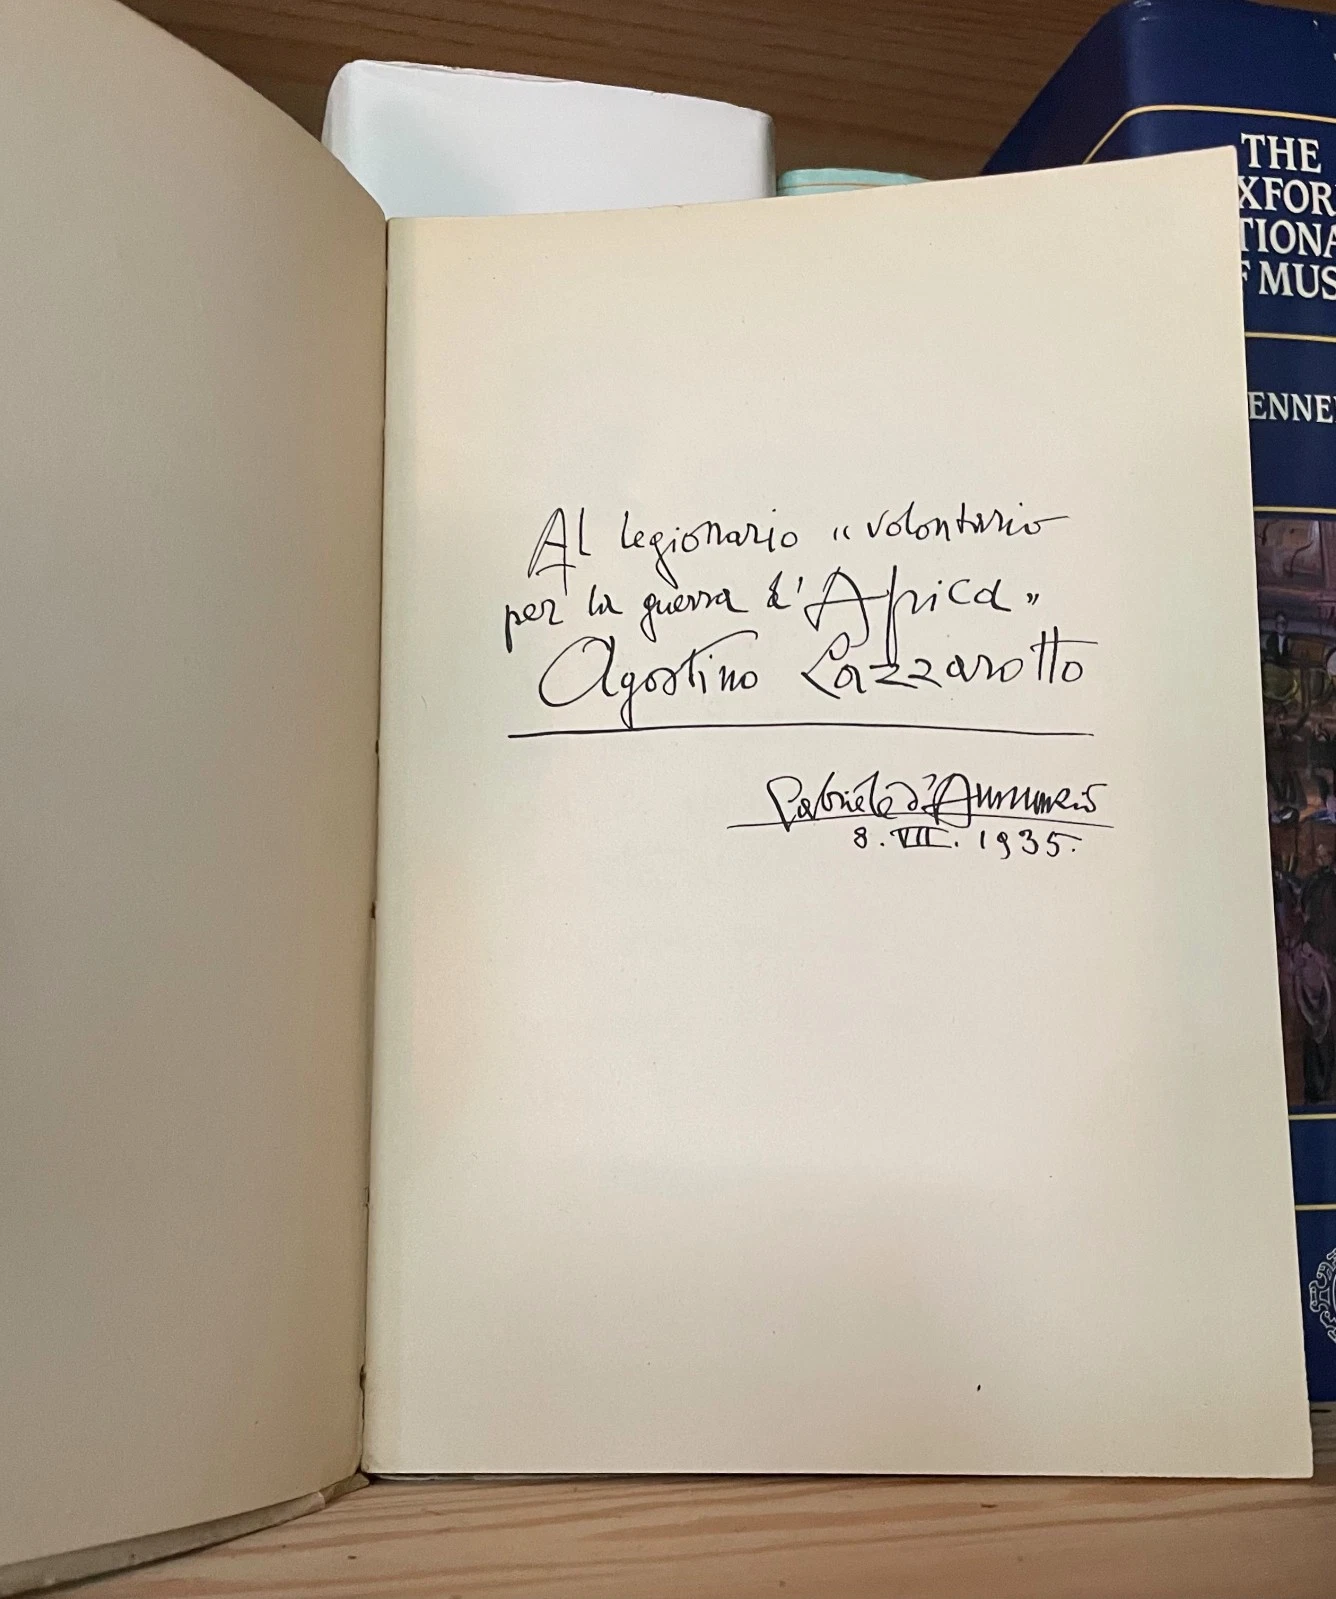 Al legionario “ volontario
per la guerra d'Africa „
Agostino Lazzarotto
Gabriele d'Annunzio
8. VII. 1935.
THE
XFOR
TIONA
F MUS
ENNE